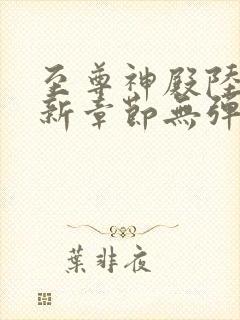 至尊神殿陸
新章節無彈
葉非夜